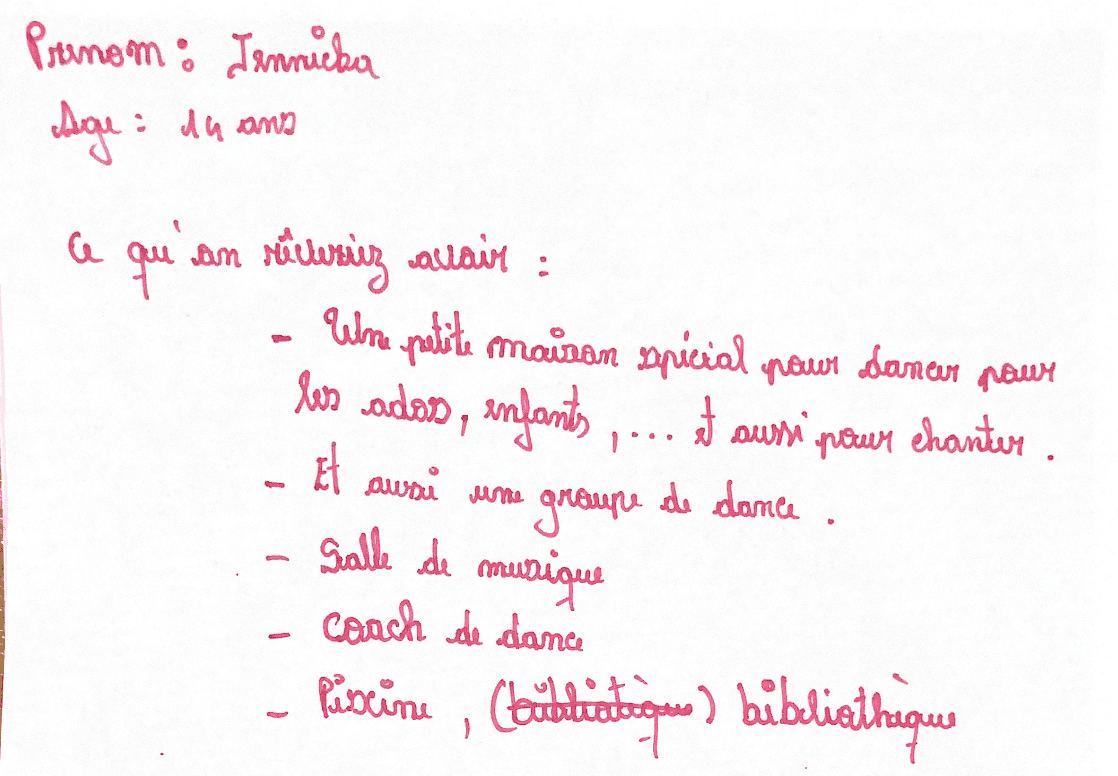 Prenom : Jennicka
Age : 14 ans
Ce qu'on rêveriez avoir :
- Une petite maison spécial pour dancer pour
les ados, enfants, ... et aussi pour chanter.
- Et aussi une groupe de dance.
- Salle de musique
- Coach de dance
- Piscine, (bibliotèque) bibeliothèque